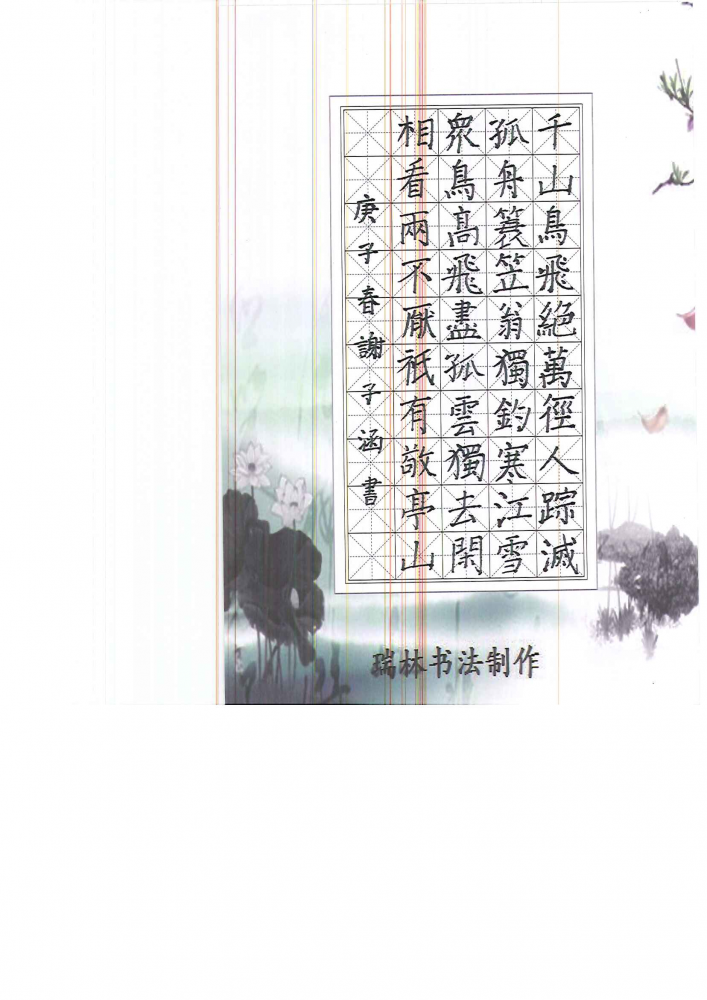 千山鳥飛絕萬徑人踪滅
孤舟簑笠翁獨釣寒江雪
衆鳥高飛盡孤雲獨去閑
相看兩不厭祇有敬亭山
庚子春謝子涵書
瑞林书法制作